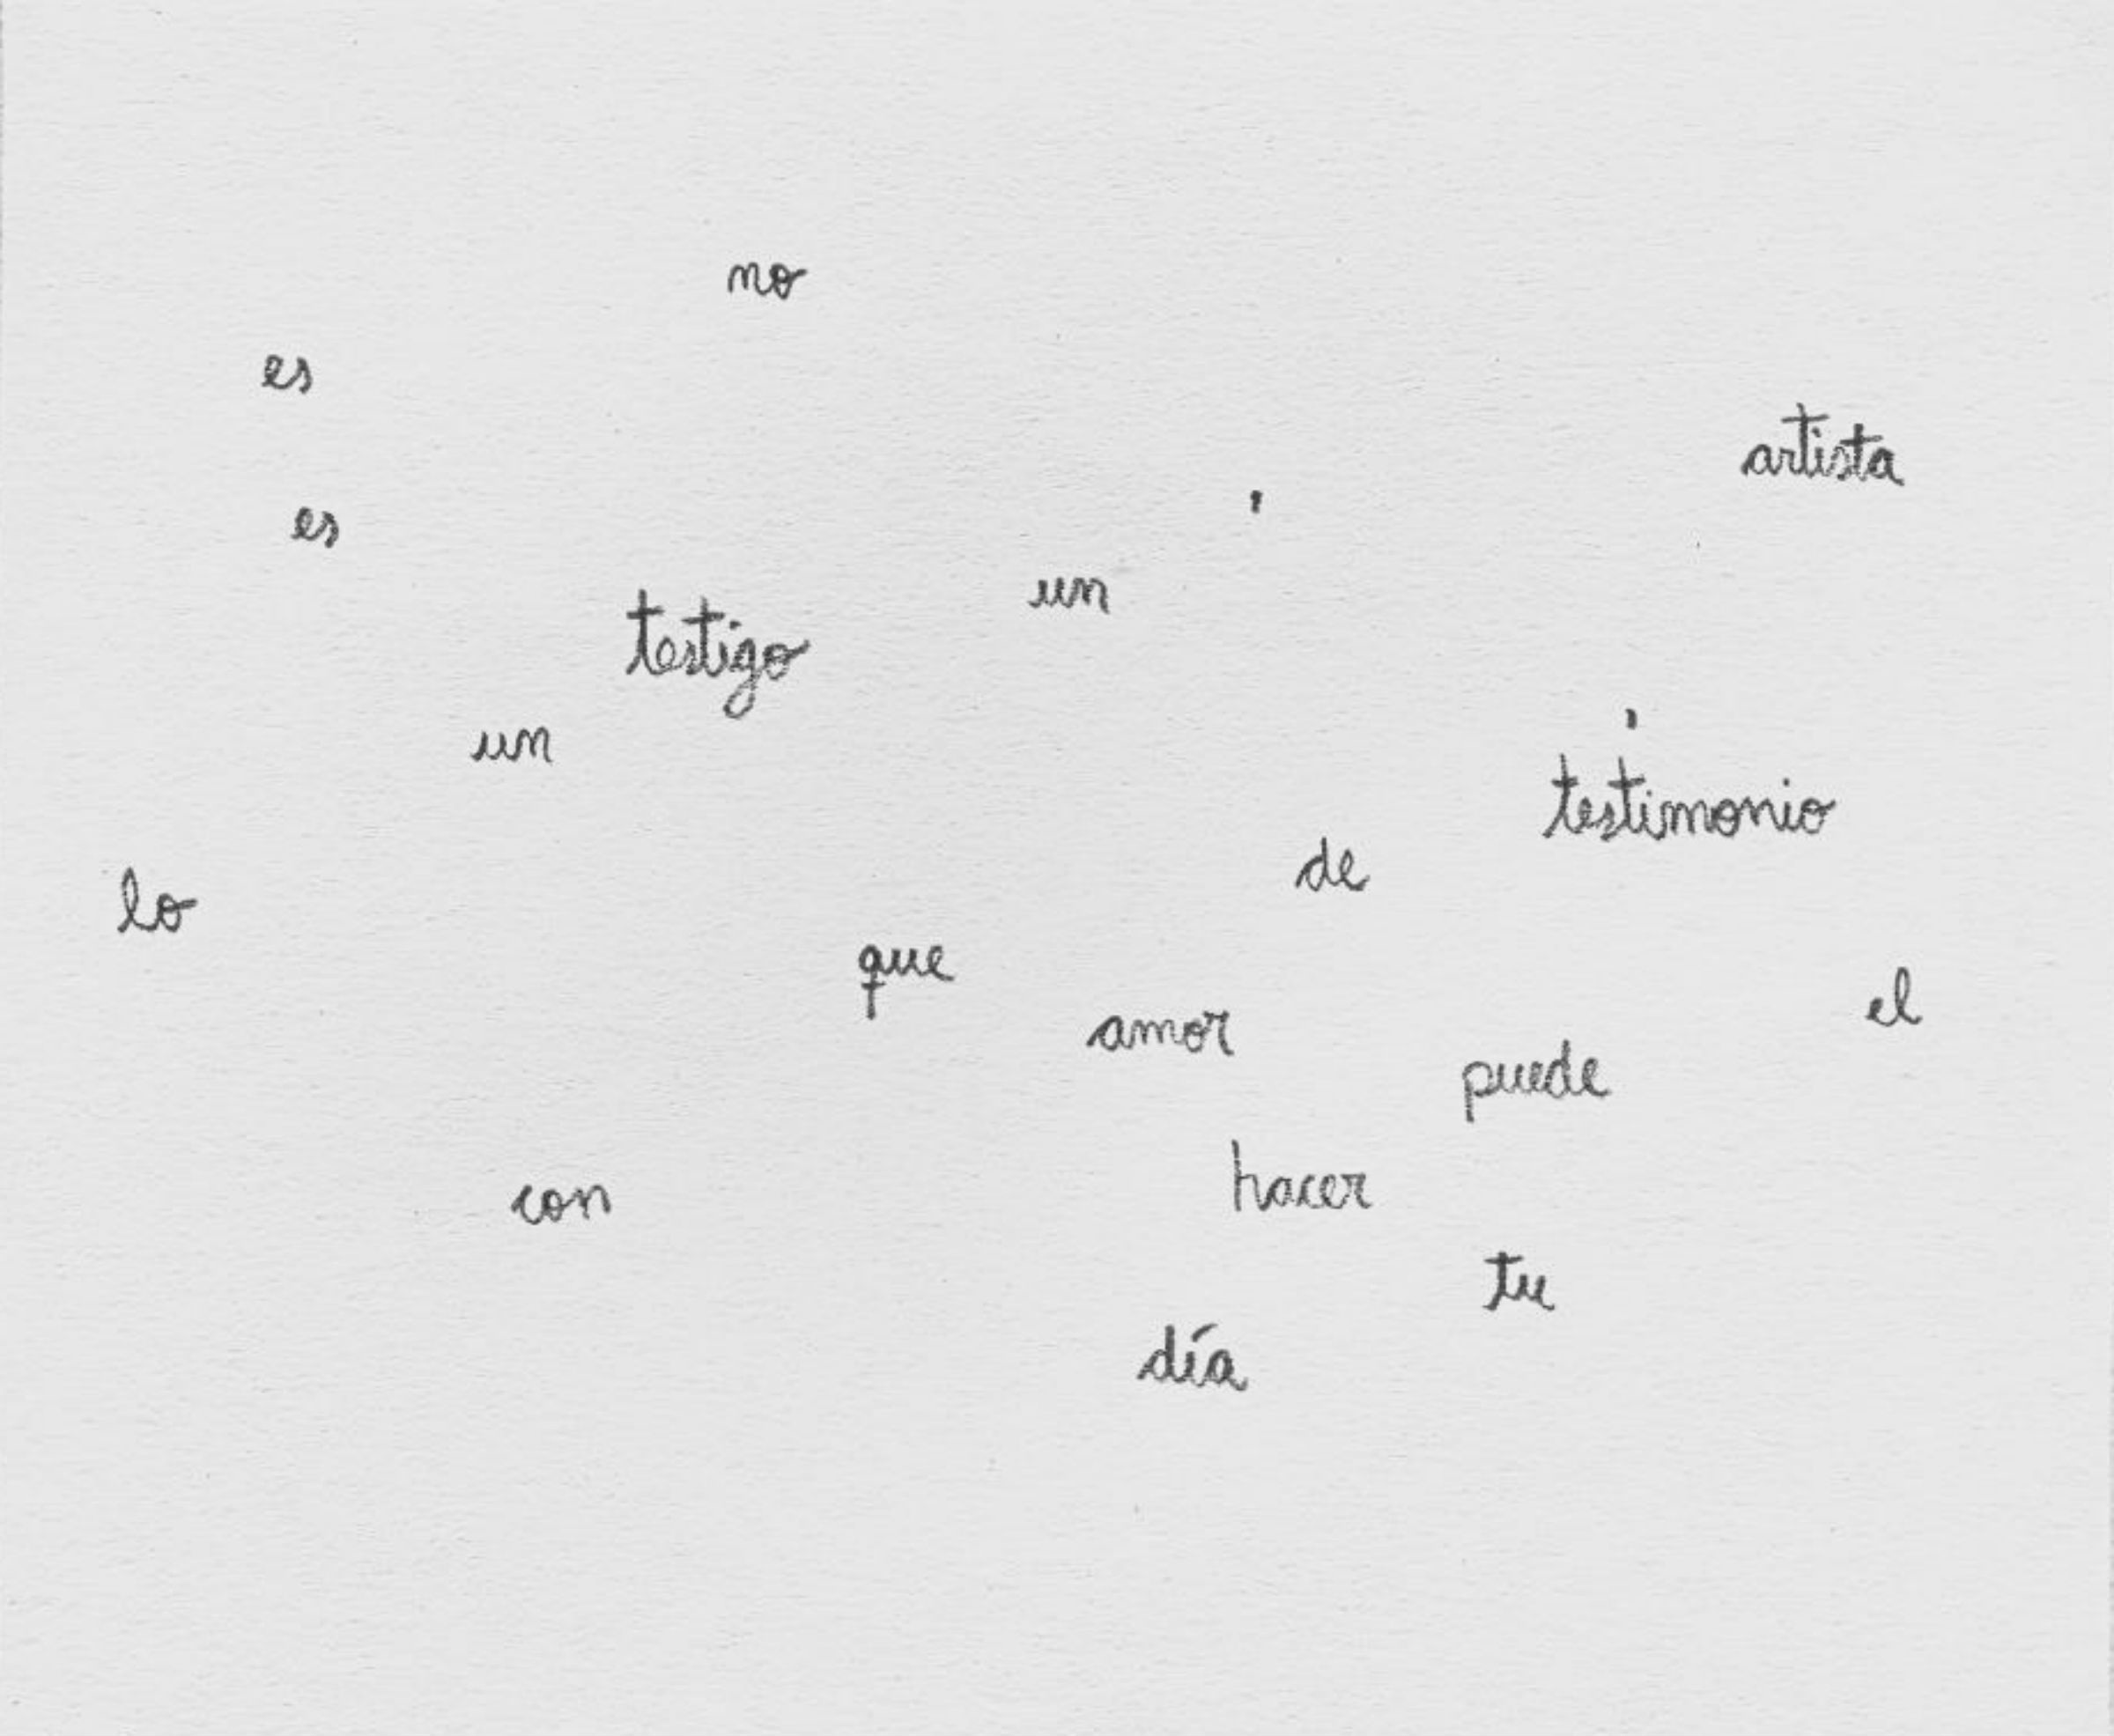 no
es
artista
,
es
un
testigo
,
un
testimonio
de
lo
que
el
amor
puede
hacer
con
tu
día